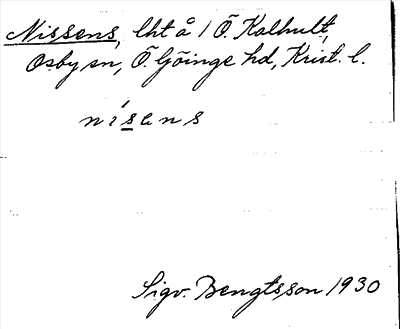 Nissens, lht å 1 Ö. Kalhult,
Osby sn, Ö. Göinge hd, Krist. l.
nísens
Sigv. Bengtsson 1930